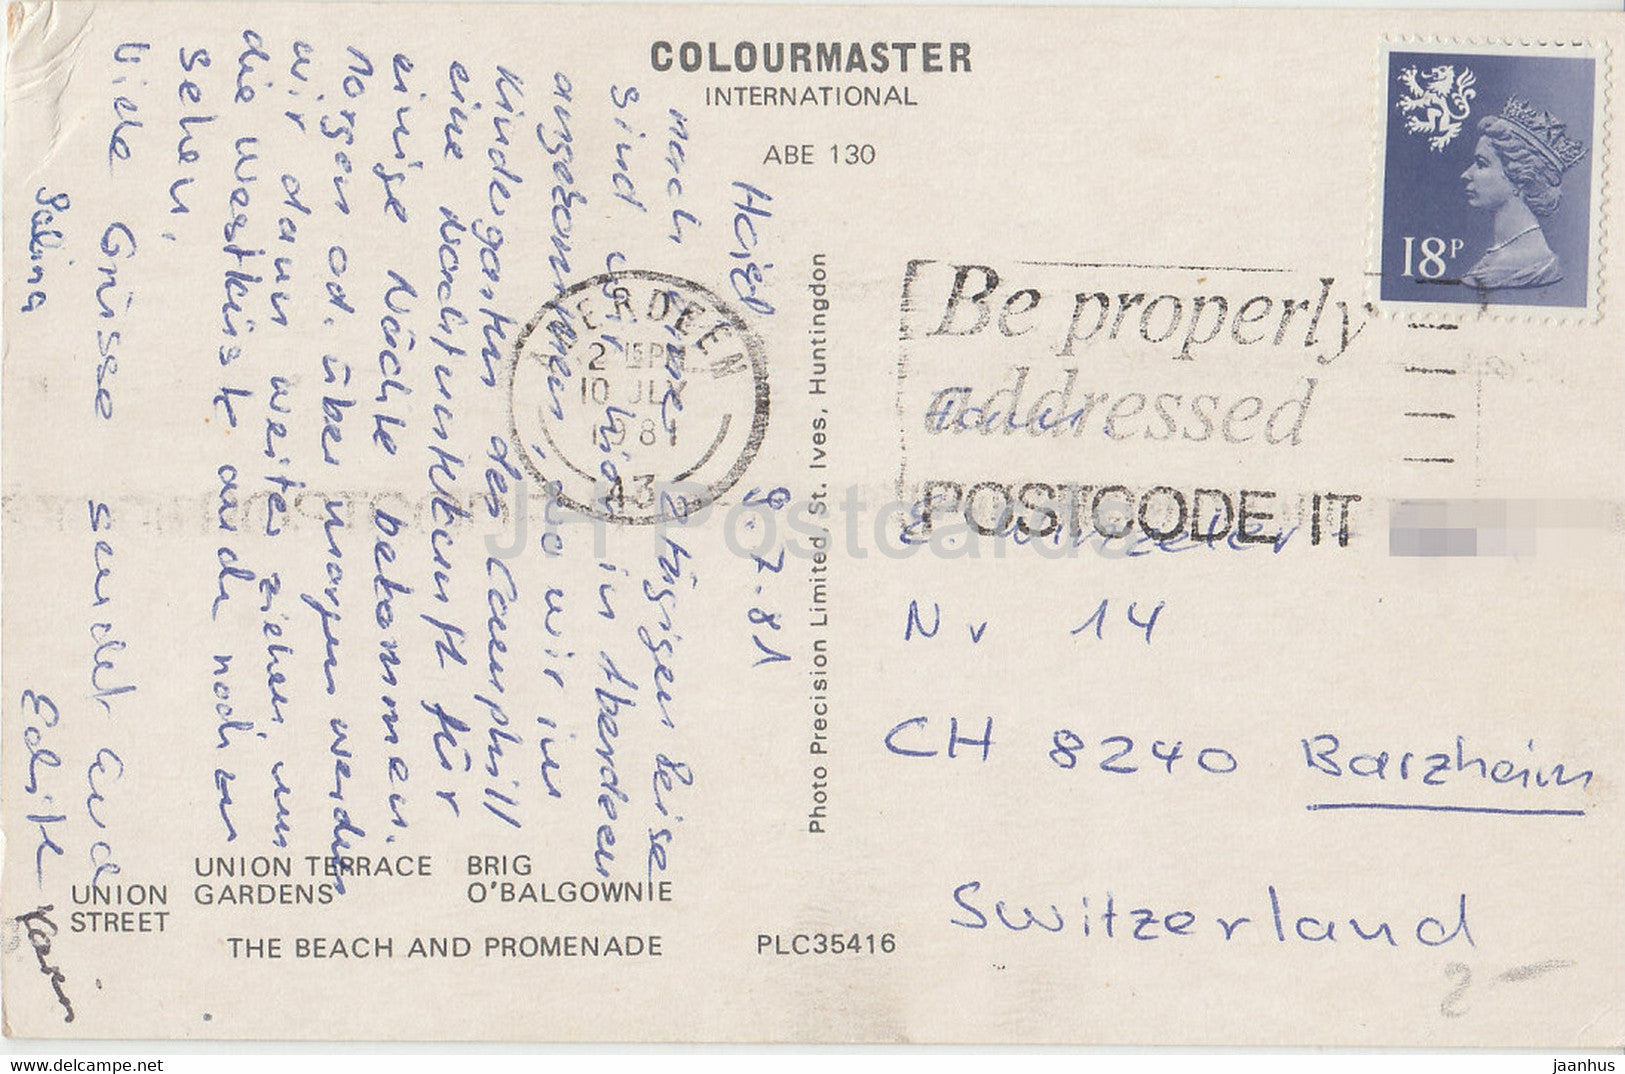 COLOURMASTER
INTERNATIONAL
ABE 130
18P
ABERDEEN
2 15 PM
10 JLY
1981
43
Be properly
addressed
POSTCODE IT
9.7.81
nach einer 2 tägigen Reise
sind wir hier in Aberdeen
angekommen, wo wir im
Kindergarten der Camphill
eine Nachtunterkunft für
einige Nächte bekommen.
Morgen od. übermorgen werden
wir dann weiter ziehen um
die Westküste auch noch zu
sehen.
Viele Grüsse sendet Euch
Edith
Karen
Photo Precision Limited, St. Ives, Huntingdon
Nr 14
CH 8240 Barzheim
Switzerland
UNION TERRACE GARDENS
BRIG O'BALGOWNIE
UNION STREET
THE BEACH AND PROMENADE
PLC35416
2-
JH Postcards
delcampe.net
jaanhus